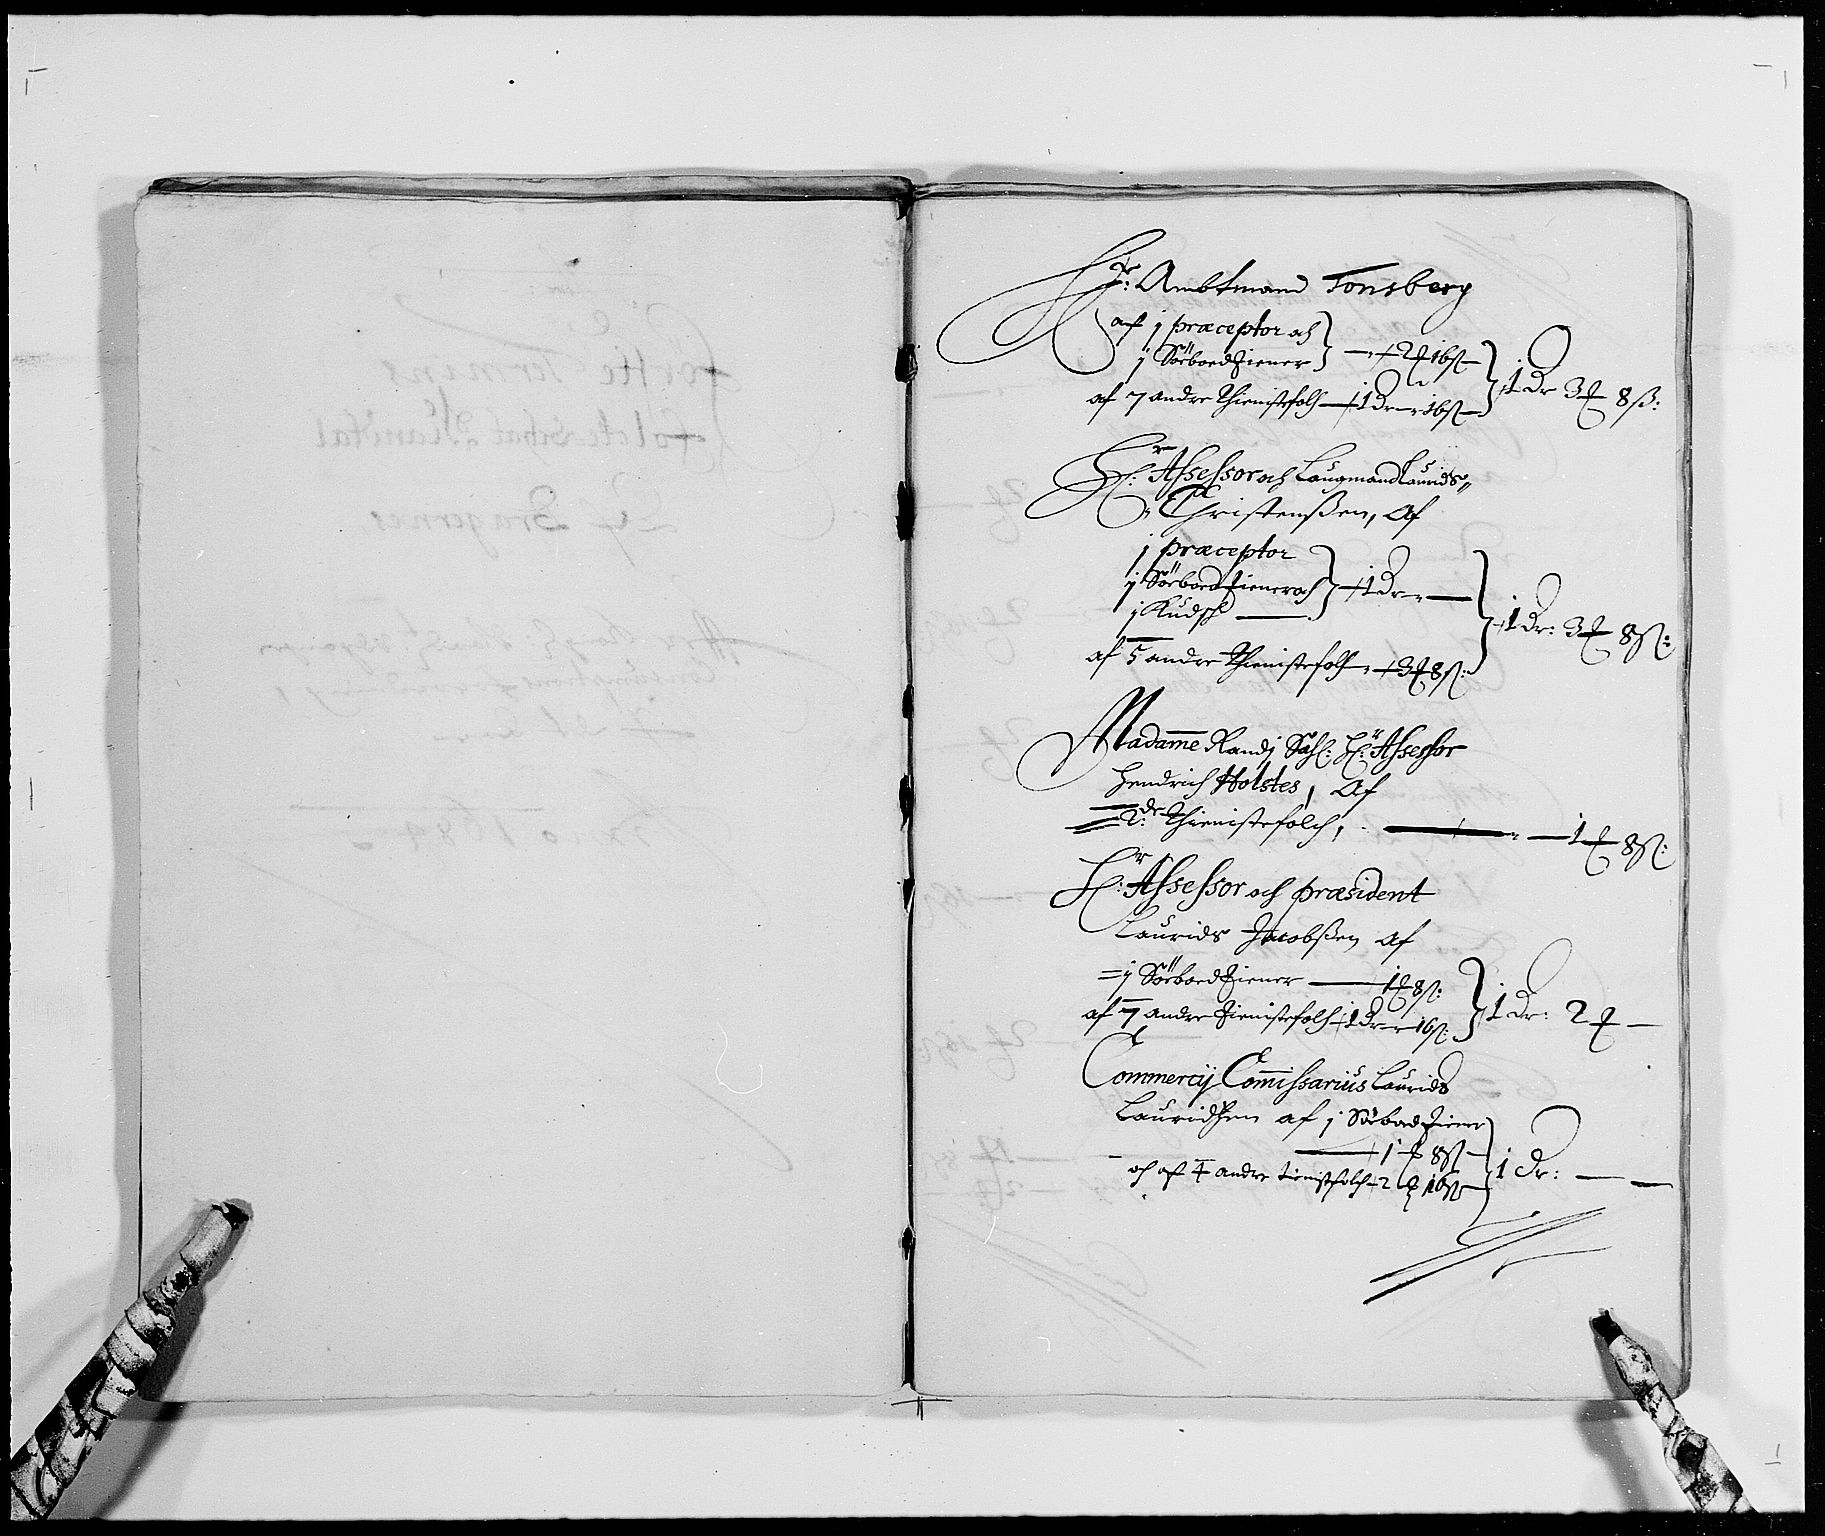 Hr: Ambtmand Tonsberg
af 1 præceptor och
1 Sörboedtiener — 2 ₰ 16 ß —
af 7 andre thienistefolch — 1 Dr — 16 ß —
1 Dr 3 ₰ 8 ß:
Hr: Assessor och Laugmand Laurids
Christenßen, Af
1 præceptor
1 Sörboedtiener och
1 Kudsk — 1 Dr —
af 5 andre thienistefolch — 3 ₰ 8 ß:
1 Dr: 3 ₰ 8 ß:
Madamme Randj Sahl: Hr: Assessor
Hendrich Holstes, Af
2de: thienistefolch, — 1 ₰ 8 ß:
Hr: Assessor och præsident
Laurids Jacobßen af
1 Sörboedtiener — 1 ₰ 8 ß:
af 7 andre tienistefolch 1 Dr — 16 ß:
1 Dr: 2 ₰ —
Commercij Commissarius Laurids
Lauridßen af 1 Sörboedtiener
— 1 ₰ 8 ß —
och af 4 andre tienistfolch — 2 ₰ 16 ß —
1 Dr: — —